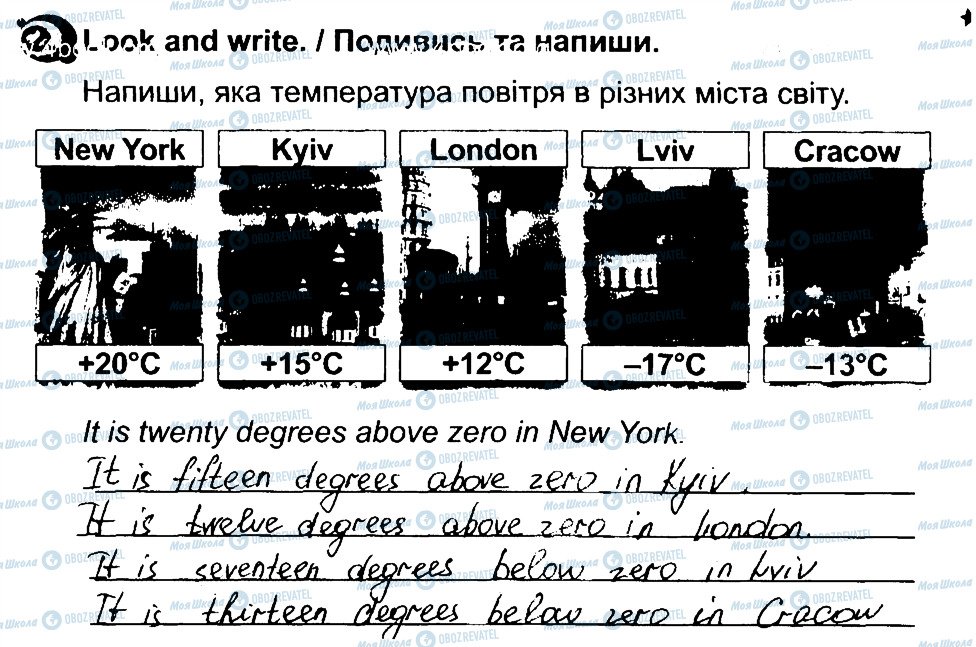 Look and write. / Подивись та напиши.
Напиши, яка температура повітря в різних міста світу.
New York Kyiv London Lviv Cracow
+20°C +15°C +12°C –17°C –13°C
It is twenty degrees above zero in New York.
It is fifteen degrees above zero in Kyiv.
It is twelve degrees above zero in London.
It is seventeen degrees below zero in Lviv
It is thirteen degrees below zero in Cracow
Моя Школа OBOZREVATEL